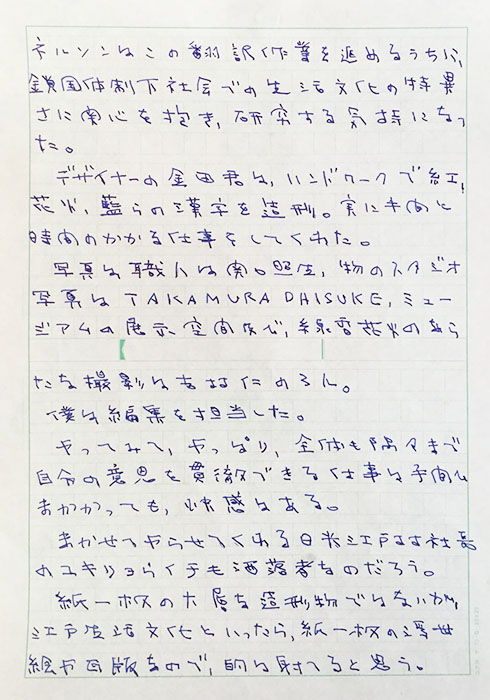 ネルソンはこの翻訳作業を進めるうちに、
鎖国体制下社会での生活文化の特異
さに関心を抱き、研究する気持になっ
た。
デザイナーの金田君は、ハンドワークで紅、
花火、藍らの漢字を造形。実に手間と
時間のかかる仕事をしてくれた。
写真は職人は関口照生、物のスタジオ
写真は TAKAMURA DHISUKE, ミュー
ジアムの展示空間
線香花火のあら
たな撮影は
僕は編集を担当した。
やってみて、やっぱり、全体も隅々まで
自分の意思を貫徹できる仕事は手間ひ
まかかっても、快感はある。
まかせてやらせてくれる日米
社長
のユキリョライチも洒落者なのだろう。
紙一枚の大層な造形物ではないが、
江戸生活文化といったら、紙一枚の浮世
絵が出版なので、的は射てると思う。